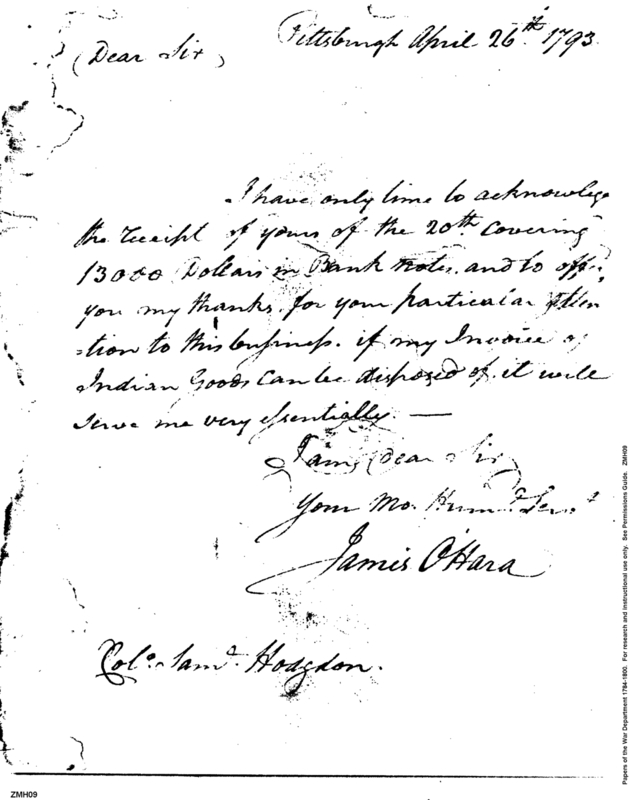 Pittsburgh April 26th. 1793
(Dear Sir)
I have only time to acknowlege
the receipt of yours of the 20th covering
13000 Dollars in Bank Notes, and to offer
you my thanks, for your particular atten
=tion to this business. if my Invoice of
Indian Goods can be disposed of it will
serve me very essentially. —
I am, Dear Sir
Your Mo. Humd. Servt
James O'Hara
Colo. Saml. Hodgdon.
Papers of the War Department 1784-1800. For research and instructional use only. See Permissions Guide. ZMH09
ZMH09